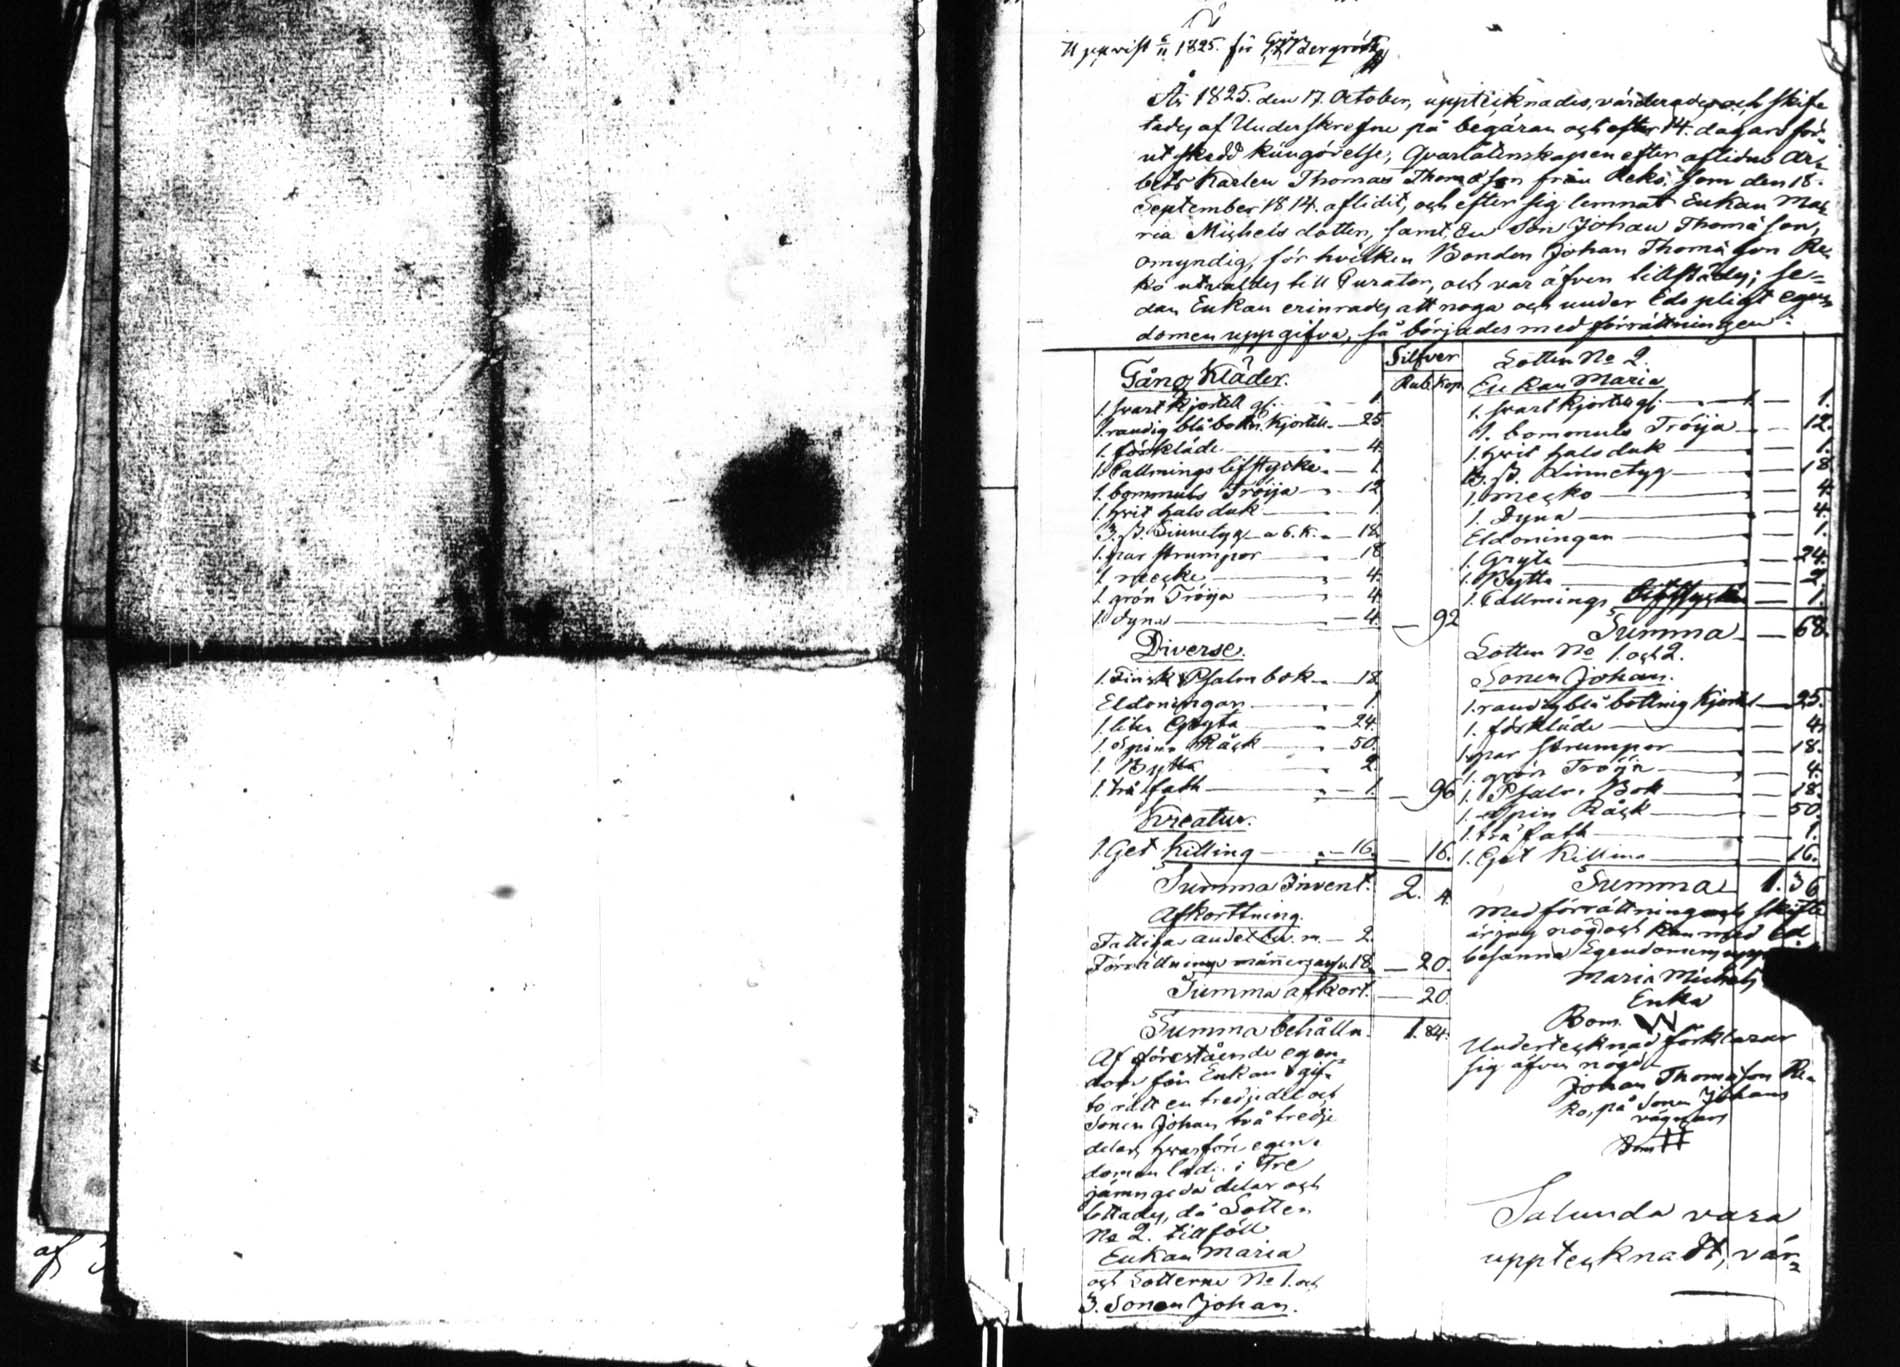 af
Uppvist 5/11 1825. för Bergroth
År 1825. den 17. October, upptecknades, värderades och skif-
tades af Underskrefne på begäran och efter 14. dagars för-
ut skedd kungörelse, Qvarlåtenskapen efter aflidne Ar-
bets Karlen Thomas Thomasson från Reko, som den 18.
September 1814. aflidit, och efter sig lemnat Enkan Ma-
ria Michelsdotter, samt, En Son Johan Thomasson,
omyndig, för hvilken Bonden Johan Thomasson Re-
ko utväldes till Curator, och var äfven tillstädes; se-
dan Enkan erinrades att noga och under Eds pligt egen-
domen uppgifva, så börjades med förrättningen:
Silfver
Rub. Kop.
Gång Kläder.
1. svart Kjortell gl. 1.
1. randig blå botn. Kjortell 25.
1. förkläde 4.
1. Vallmings Lifstycke 1.
1. bommuls Tröija 12.
1. hvit halsduk 1.
3. st. Linnetyg a 6. k. 18.
1. par strumpor 18
1. mecko 4.
1. grön Tröija 4.
1. dyna 4. 92
Diverse.
1. Finsk Psalm bok 18.
Eldoningan 1.
1. liten Gryta 24.
1. Spinn Råck 50.
1. Bytta 2.
1. trä fath 1. 96
Kreatur.
1. Get Killing 16. 16.
Summa Invent. 2. 4.
Afkorttning.
Fattigas andel 2.
Förrättnings männerz arfv. 18. 20.
Summa afkort. 20.
Summa behålln. 1. 84.
Af förestående egen-
dom får Enkan gif-
to rätt en tredjedel och
Sonen Johan två tredje
delar, hvarföre egen-
domen lades i Tre
jämngoda delar och
lottades, då Lotten
No 2. tillföll
Enkan Maria
och Lotterne No 1. och
3. Sonen Johan.
Lotten No 2.
Enkan Maria
1. svart Kjortell gl. 1.
1. bommuls Tröija 12.
1. hvit halsduk 1.
3. st. Linnetyg 18.
1. mecko 4.
1. Dyna 4.
Eldoningan 1.
1. Gryta 24.
1. Bytta 2.
1. Vallmings Lifstycke 1.
Summa 68.
Lotten No 1. och 2.
Sonen Johan.
1. randig blå bottnig Kjortel 25.
1. förkläde 4.
1. par strumpor 18.
1. grön Tröija 4.
1. Psalm Bok 18.
1. Spin Råck 50.
1. trä fath 1.
1. Get Killing 16.
Summa 1. 36
Med förrättning och skifte
är jag nögd och kan med Ed
besanna Egendomens upp
Maria Michels
Enka
Bom.
Undertecknad förklarar
sig äfven nögd
Johan Thomasson Re-
ko, på Sonen Johans
vägnar
Bom
Salunda vara
uppteknadt, vär-